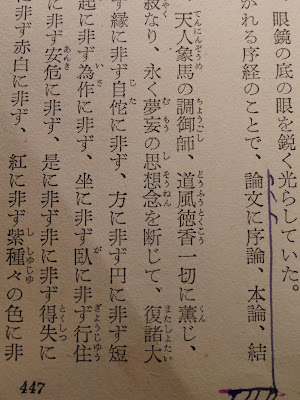 眼鏡の底の眼を鋭く光らしていた。
かれる序経のことで、論文に序論、本論、結
天人象馬の調御師、道風徳香一切に薫じ、
寂なり、永く夢妄の思想念を断じて、復諸大
ず縁に非ず自佗に非ず、方に非ず円に非ず短
起に非ず為作に非ず、坐に非ず臥に非ず行住
に非ず安危に非ず、是に非ず非に非ず得失に
に非ず赤白に非ず、紅に非ず紫種々の色に非
447